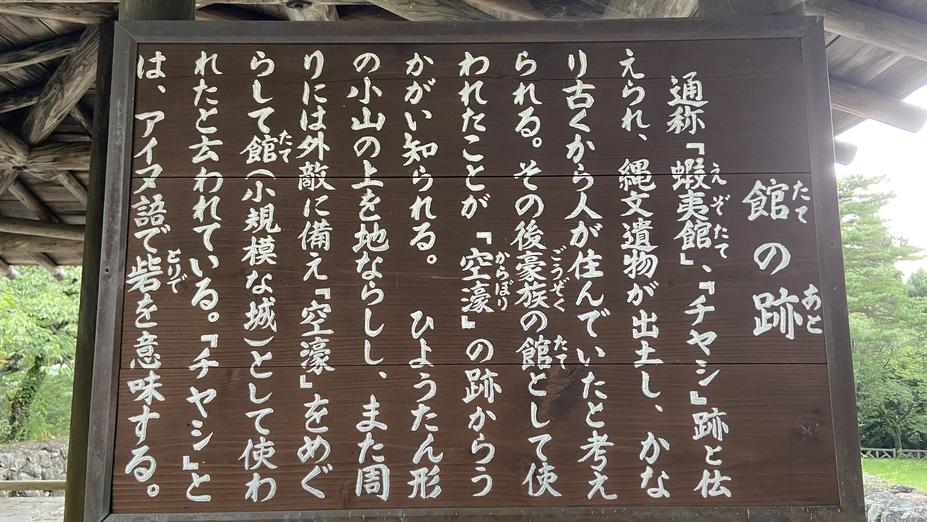 館の跡
通称「蝦夷館」、『チヤシ』跡と伝
えられ、縄文遺物が出土し、かな
り古くから人が住んでいたと考え
られる。その後豪族の館として使
われたことが『空濠』の跡からう
かがい知られる。　ひようたん形
の小山の上を地ならしし、また周
りには外敵に備え『空濠』をめぐ
らして館(小規模な城)として使わ
れたと云われている。『チヤシ』と
は、アイヌ語で砦を意味する。